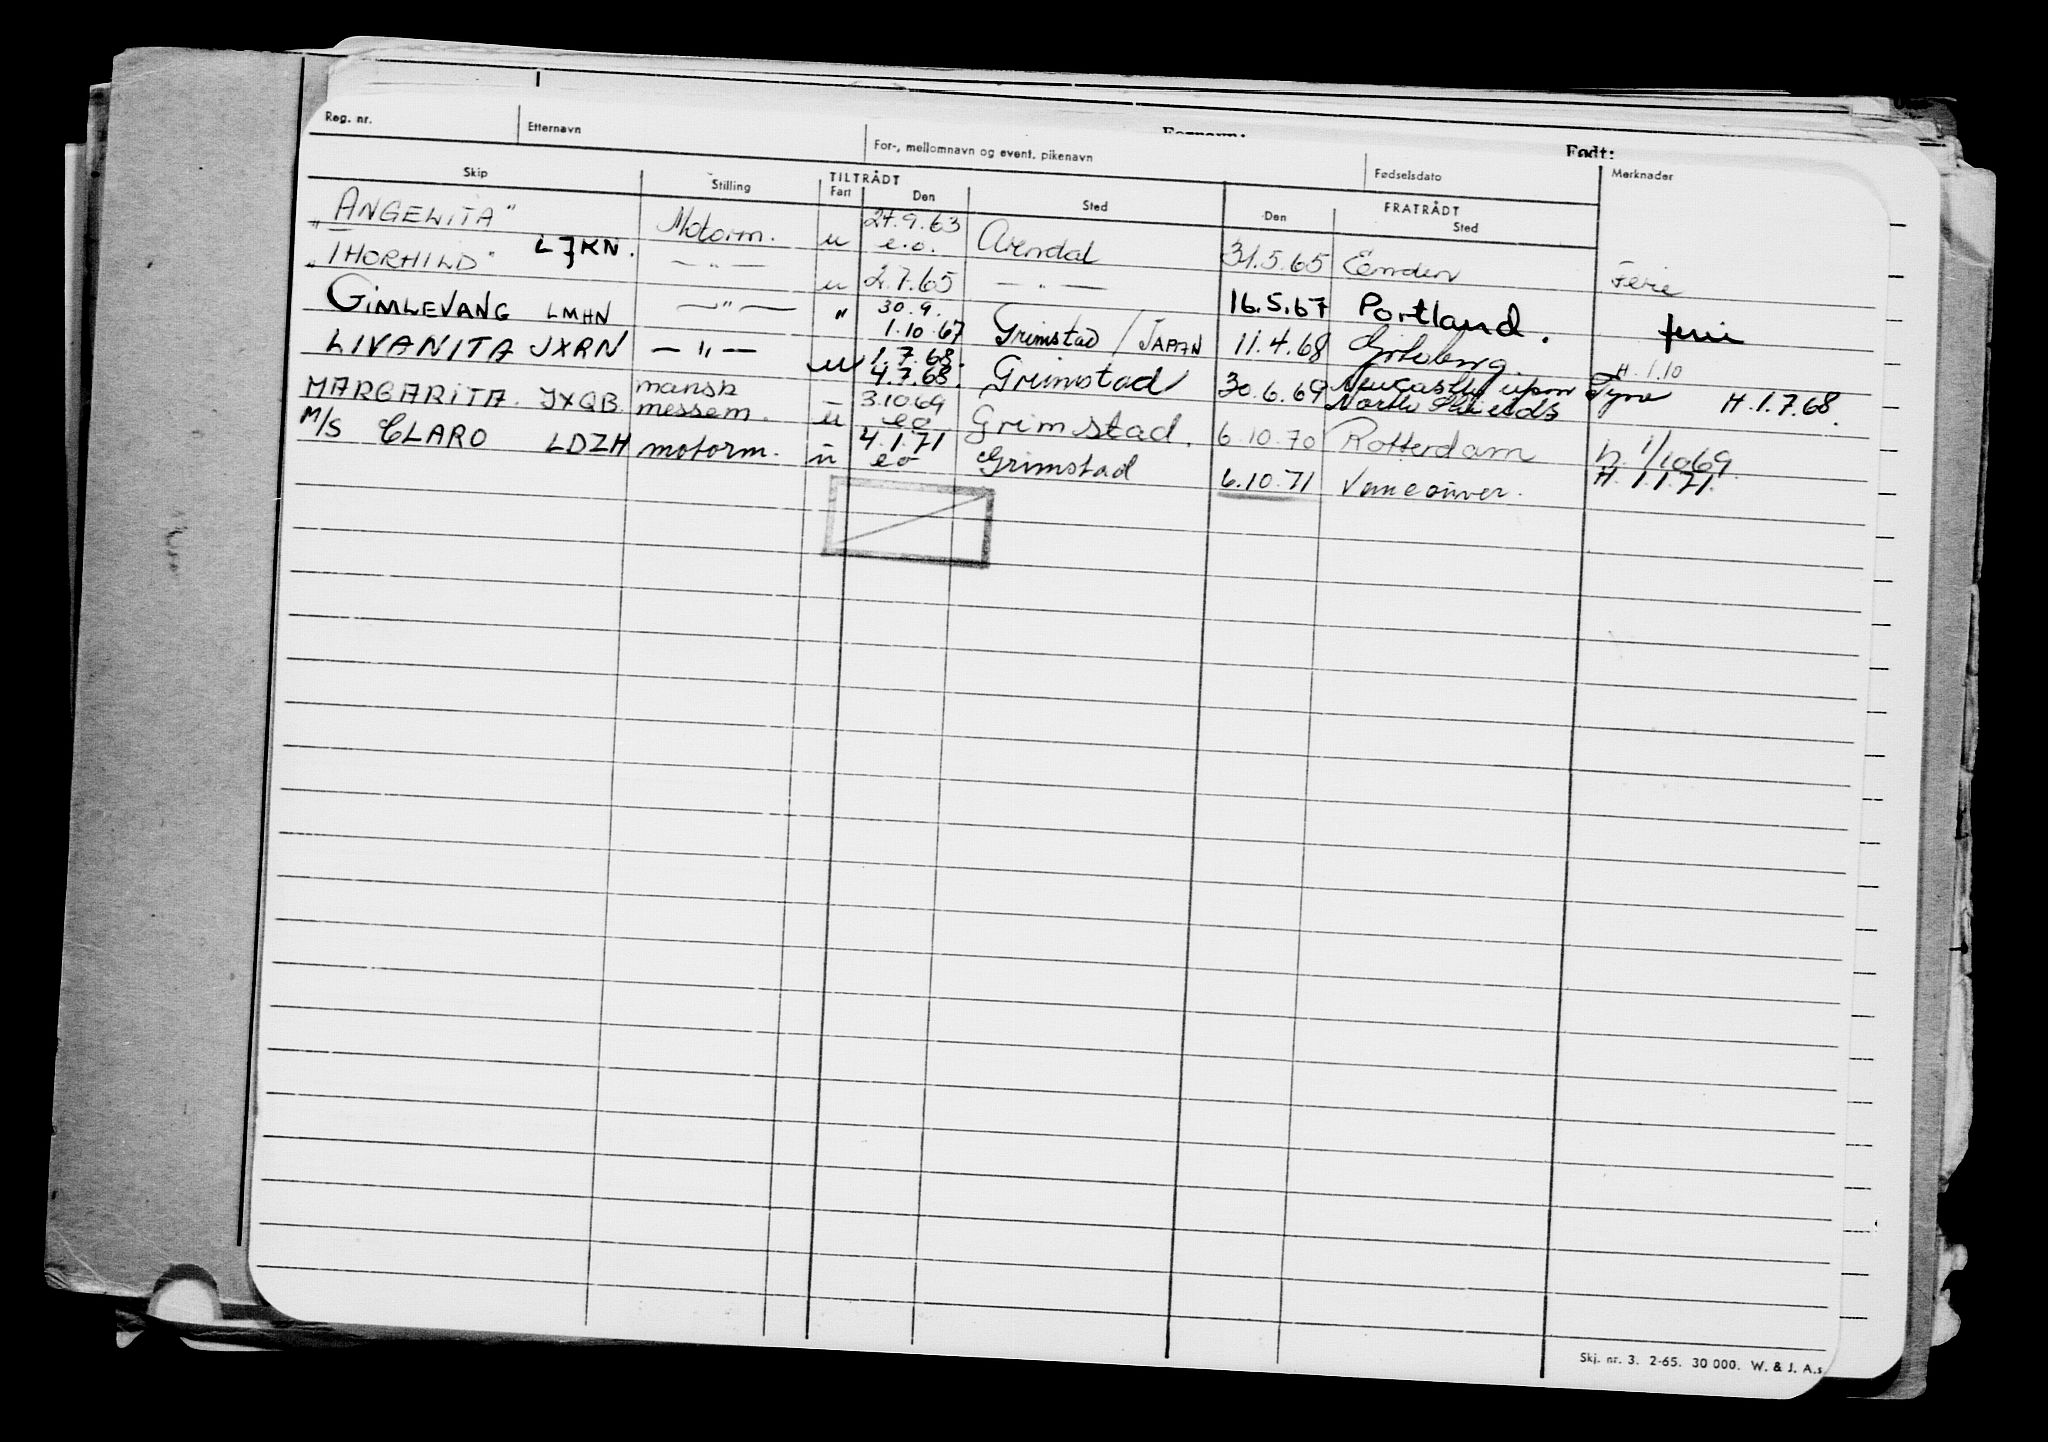 Fornavn: Født:
Reg. nr. Etternavn For-, mellomnavn og event. pikenavn Fødselsdato Merknader
Skip Stilling TILTRÅDT FRATRÅDT
Fart Den Sted Den Sted
"ANGELITA" Motorm. u 24.9.63 e.o. Arendal 31.5.65 Emden Ferie
"THORHILD" LJKN. — " — u 2.7.65 — " — 16.5.67 Portland. ferie
GIMLEVANG LMHN — " — " 30.9. 1.10.67 Grimstad / JAPAN 11.4.68 Gotoberg. H. 1.10
LIVANITA JXRN — " — u 1.7.68. 4.7.68. Grimstad 30.6.69 Newcastle upon Tyne North Shields H.1.7.68.
MARGARITA. JXQB. mansk messem. u 3.10 69 eo Grimstad. 6.10.70 Rotterdam h. 1/10 69.
M/S CLARO LDZH motorm. u 4.1.71 eo Grimstad 6.10.71 Vancouver. H. 1.1.71.
Skj. nr. 3. 2-65. 30 000. W. & J. A.s